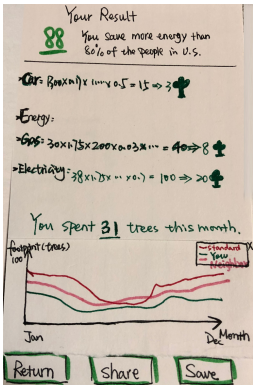 Your Result
88 You save more energy than
80% of the people in U.S.
Car= = 15 ⇒ 3
Energy:
Gas: = 40 ⇒ 8
Electricity: = 100 ⇒ 20
You spent 31 trees this month.
footprint (trees)
100
standard
You
Neighbor
Jan
Dec Month
Return
Share
Save